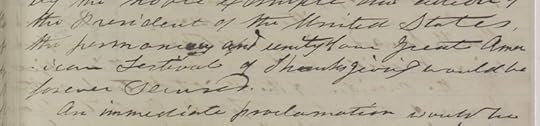 by the noble example and action of
the President of the United States,
the permanency and unity of our Great Amer-
ican Festival of Thanksgiving would be
forever secured.
An immediate proclamation would be